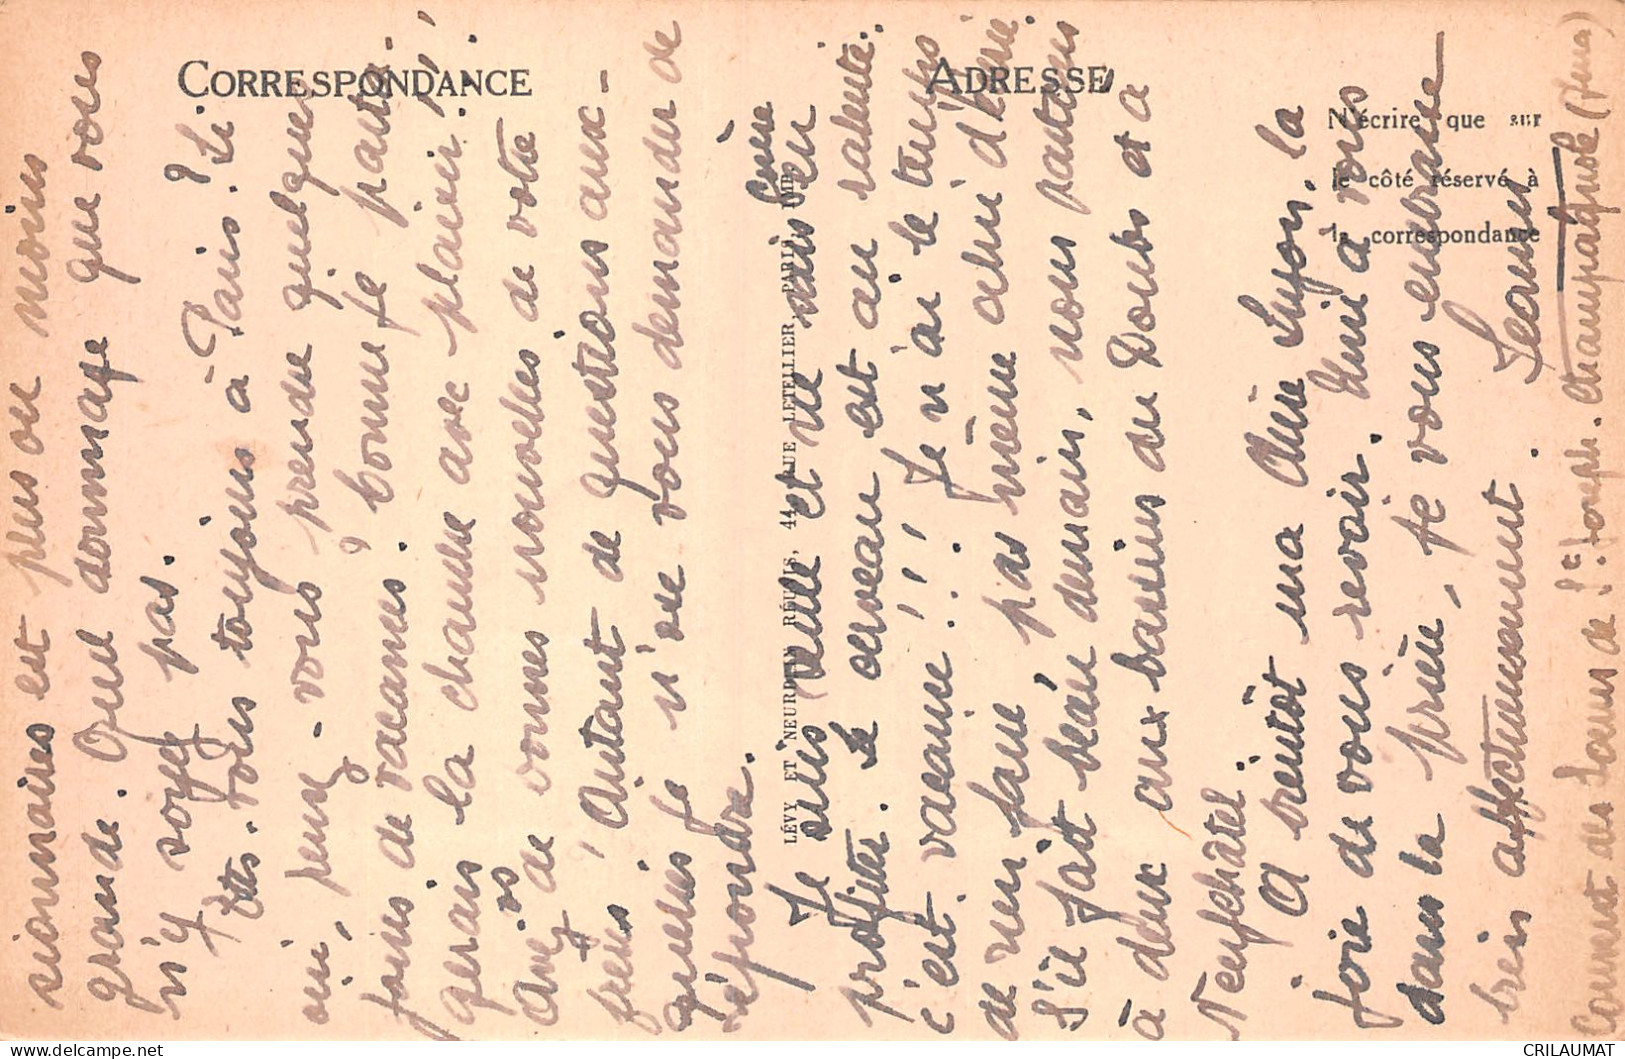 CORRESPONDANCE
ADRESSE
N'écrire que sur
le côté réservé à
la correspondance
LÉVY ET NEURDEIN RÉUNIS, 44, RUE LETELLIER, PARIS, IMP.
sionnaires est plus ou moins
grande. Quel dommage que vous
n'y soyez pas.
Êtes-vous toujours à Paris ? Si
oui, pensez-vous prendre quelques
jours de vacances ? Comme je parta-
gerais la chambre avec plaisir !!
Avez-vous de bonnes nouvelles de votre
frère ? Autant de questions aux-
quelles je n'ose vous demander de
répondre.
Je suis seule et ne sais en
profiter. Le cerveau est au ralenti.
c'est vacance !!! Je n'ai le temps
de rien faire, pas même celui d'écrire.
S'il fait beau demain, nous partons
à deux aux bassins du Doubs et à
Neufchâtel.
A bientôt ma chère Suzon, la
joie de vous revoir. Unie à vous
dans la prière, je vous embrasse
bien affectueusement.
Couvent des Sœurs de St. Joseph. Champagnole (Jura)